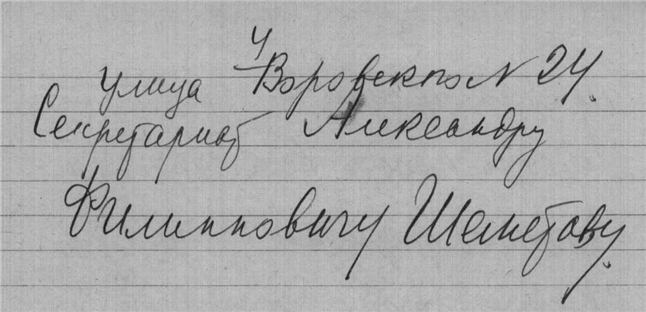 улица Воровского N 24.
Секретариат Александру
Филипповичу Шеметову.